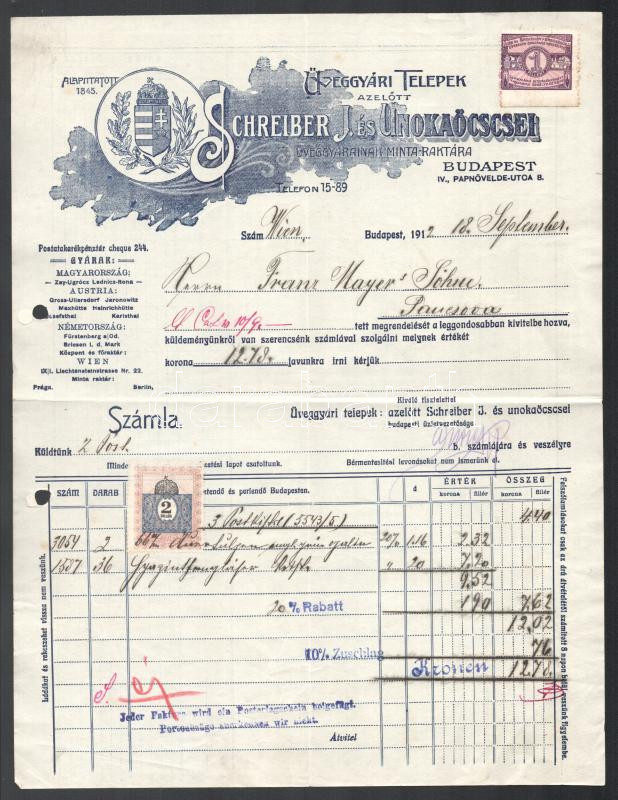 ALAPÍTTATOTT
1845.
ÜVEGGYÁRI TELEPEK
AZELŐTT
SCHREIBER J. ÉS UNOKAÖCSCSEI
ÜVEGGYÁRAINAK MINTA-RAKTÁRA
BUDAPEST
IV., PAPNÖVELDE-UTCA 8.
TELEFON 15-89
1
Szám Wien, Budapest, 1912 18. September.
Postatakarékpénztár cheque 244.
GYÁRAK:
MAGYARORSZÁG:
Zay-Ugrócz Lednicz-Rona
AUSTRIA:
Gross-Ullersdorf Jaronowitz
Maxhütte Heinrichhütte
Josefsthal Karlsthal
NÉMETORSZÁG:
Fürstenberg a/Od.
Briesen i. d. Mark
Központ és főraktár:
WIEN
IX/I. Liechtensteinstrasse Nr. 22.
Minta raktár:
Prága. Berlin,
Herrn Franz Mayer's Söhne
Pancsova
10/9. tett megrendelését a leggondosabban kivitelbe hozva,
küldeményünkről van szerencsénk számlával szolgálni melynek értékét
korona 12.78. javunkra irni kérjük.
Kiváló tisztelettel
Számla. Üveggyári telepük: azelőtt Schreiber J. és unokaöcscsei
budapesti üzletvezetősége
Küldtünk 2 Post b. számlájára és veszélyre
Minde etési lapot csatoltunk. Bérmentesítési levonásokat nem ismerünk el.
SZÁM DARAB d ÉRTÉK ÖSSZEG
korona fillér korona fillér
2
etendő és perlendő Budapesten.
3 Postkistel (5543/5) 4.40
3054 2 667 20% 1.16 2.32
1587 36 " 20 7.20
9.52
20% Rabatt 1 90 7.62
12.02
10% Zuschlag 76
Kronen 12.78.
Jeder Faktura wird ein Posterlagschein beigefügt.
Portoabzüge anerkennen wir nicht.
Átvitel
Ládákat és rekeszeket vissza nem veszünk.
Felszólamlásokat csak az árú átvételétől számított 8 napon belül veszünk figyelembe.